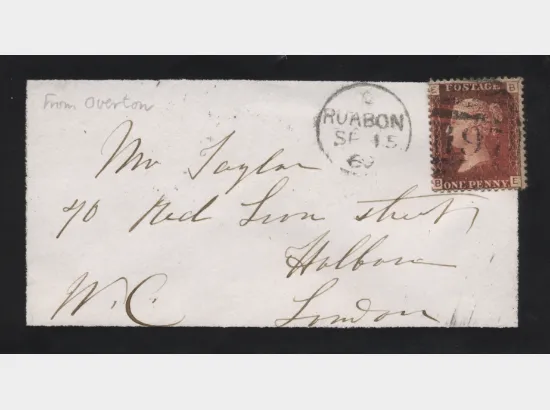 From Overton
C
RUABON
SP 15
69
E B
POSTAGE
ONE PENNY
B E
Mr Taylor
40 Red Lion street
Holborn
W.C.
London